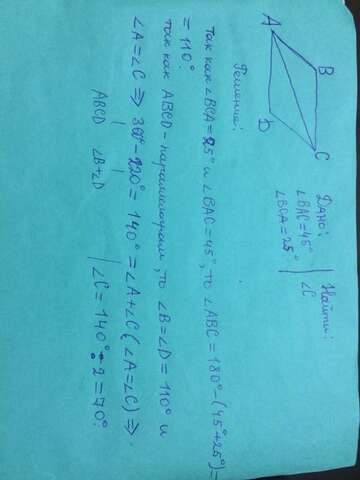 A
B
C
D
Дано:
∠BAC=45°
∠BCA=25°
Найти:
∠C
Решение:
Так как ∠BCA=25° и ∠BAC=45°, то ∠ABC=180°-(45°+25°)=
=110°.
так как ABCD-параллелограм, то ∠B=∠D=110° и
∠A=∠C => 360°-220°=140°=∠A+∠C (∠A=∠C) =>
ABCD ∠B+∠D
∠C=140°:2=70°.